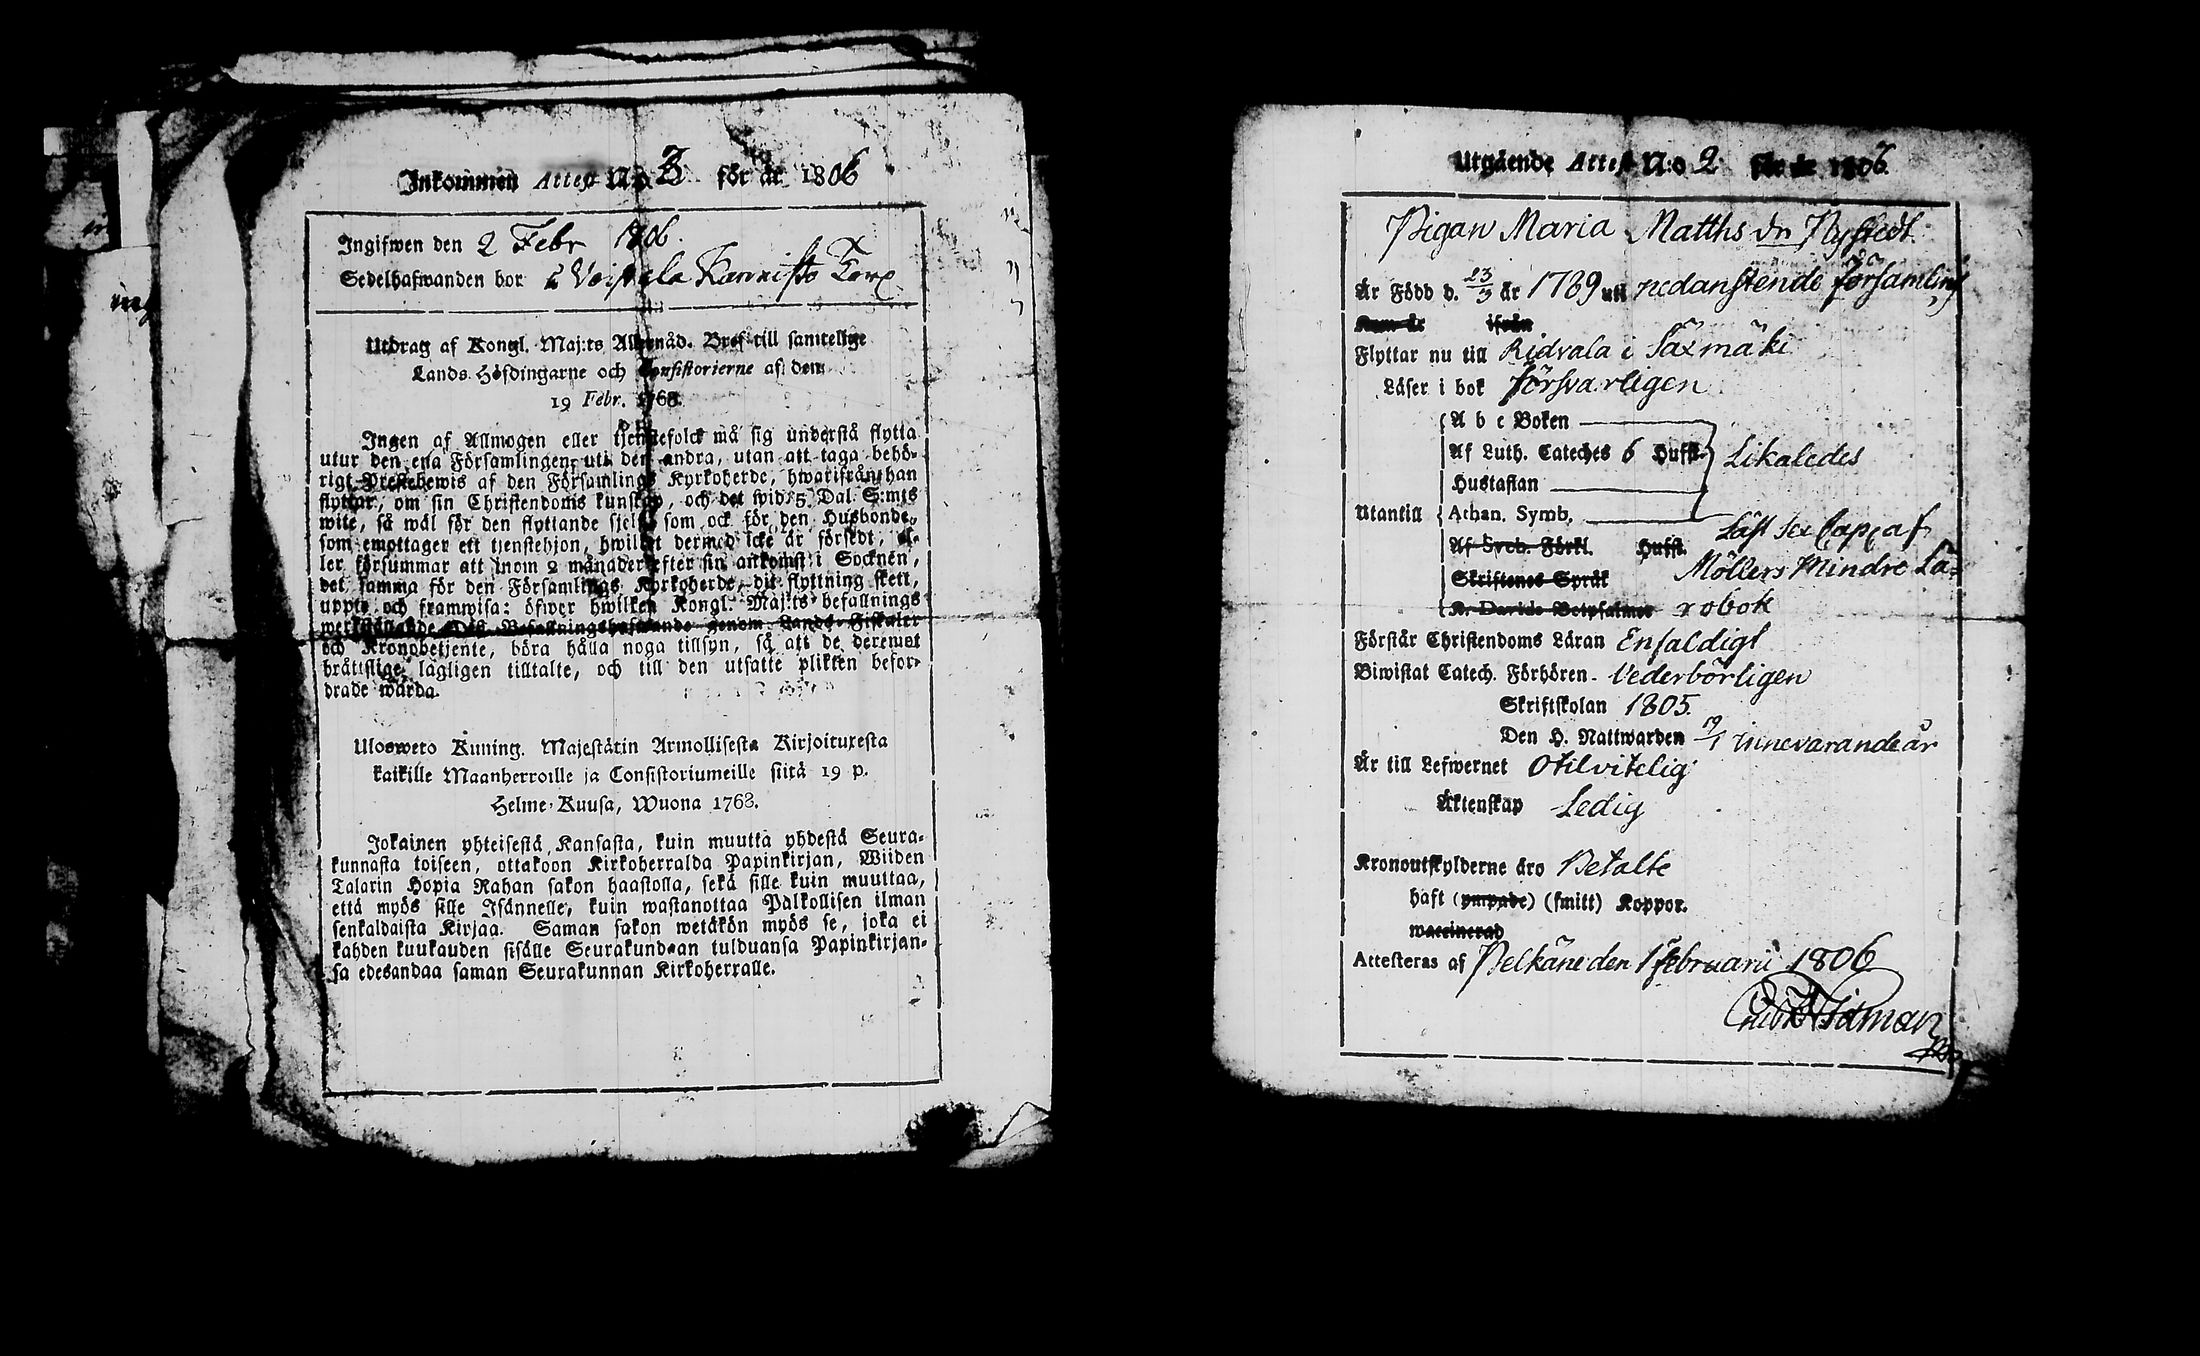 Inkommen Attest N:o 3 för år 1806
Ingifwen den 2 Febr 1806.
Sedelhafwanden bor i Voipala Kannisto Torp
Utdrag af Kongl. Maj:ts Allernåd. Bref till samtelige
Lands Höfdingarne och Consistorierne af den
19 Febr. 1768.
Ingen af Allmogen eller tjenstefolck må sig understå flytta
utur den ena Församlingen uti den andra, utan att taga behö-
rigt Prestebewis af den Församlings Kyrkoherde, hwarifrån han
flyttar, om sin Christendoms kunskap, och det wid 5 Dal. S:mts
wite, så wäl för den flyttande sjelf, som ock för den Husbonde,
som emottager ett tjenstehjon, hwilket dermed icke är försedt, el-
ler försummar att inom 2 månader efter sin ankomst i Socknen,
det samma för den Församlings Kyrkoherde, dit flyttning skett,
uppte och framwisa: öfwer hwilken Kongl. Maj:ts befallnings
werkställande Dess Befallningshafwande genom Lands Fiskaler
och Kronobetjente, böra hålla noga tillsyn, så att de deremot
bråttslige, lagligen tilltalte, och till den utsatte plikten befor-
drade warda.
Ulosweto Kuning. Majestätin Armollisesta Kirjoituxesta
kaikille Maanherroille ja Consistoriumeille siitä 19 p.
Helme-Kuusa, Wuona 1768.
Jokainen yhteisestä Kansasta, kuin muutta yhdestä Seura-
kunnasta toiseen, ottakoon Kirkoherralda Papinkirjan, Wiiden
Talarin Hopia Rahan sakon haastolla, sekä sille kuin muuttaa,
että myös sille Isännelle, kuin wastanottaa Palkollisen ilman
senkaldaista Kirjaa. Saman sakon wetäkön myös se, joka ei
kahden kuukauden sisälle Seurakundaan tulduansa Papinkirjan-
sa edesandaa saman Seurakunnan Kirkoherralle.
Utgående Attest N:o 2 för år 1806.
Pigan Maria Matths dr Nystedt
Är Född d. 23/3 år 1789 uti nedanstende församling
Kom år ifrån
Flyttar nu till Ridvala i Säxmäki
Läser i bok försvarligen
A b c Boken
Af Luth. Cateches 6 Hufst. Likaledes
Hustaflan
Utantill Athan. Symb.
Läst sex Cap: af
Af Sveb. Förkl. Hufst.
Möllers Mindre Lä-
Skriftenes Språk
K. Davids Botpsalmer robok
Förstår Christendoms Läran Enfaldigt
Biwistat Catech. Förhören. Vederbörligen
Skriftskolan 1805.
Den H. Nattwarden 19/1 innevarande år
Är till Lefwernet Otilvitelig
Äktenskap Ledig
Kronoutskylderne äro Betalte
haft (ympade) (smitt) Koppor.
waccinerad
Attesteras af Pelkäne den 1 februarii 1806